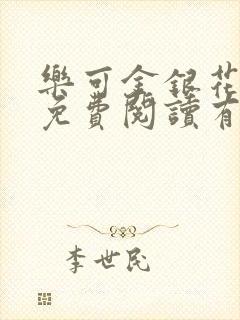 樂可金銀花
免費閱讀有
李世民